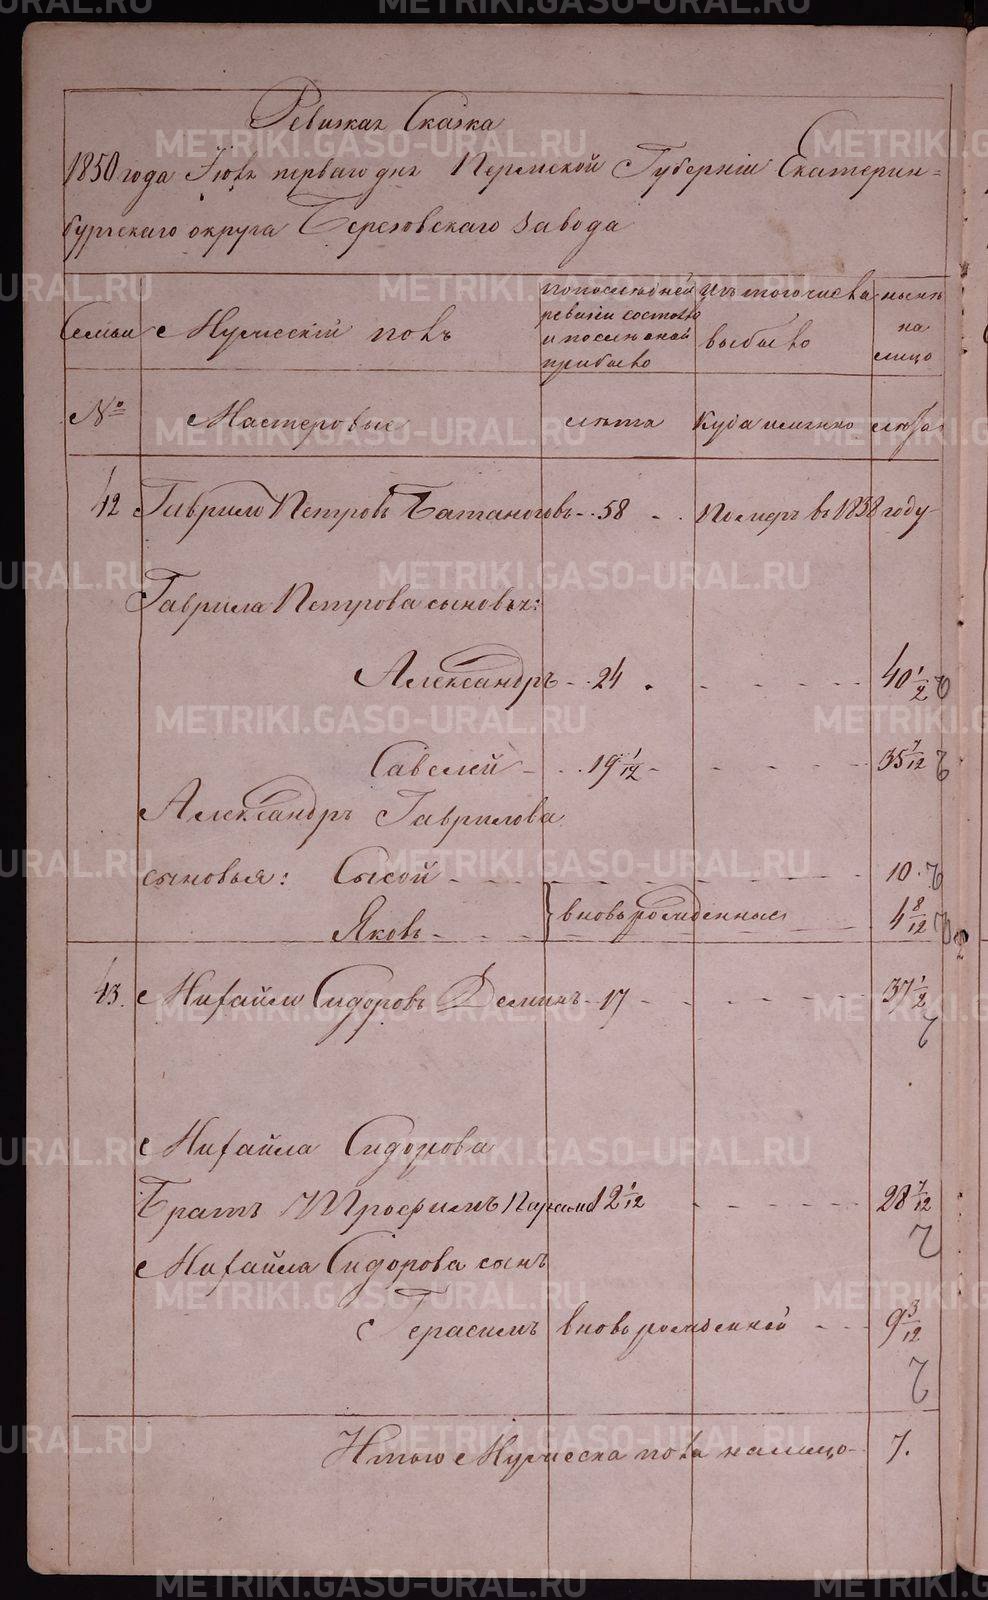 Ревизкая Сказка
1850 года Июня перваго дня Пермской Губерніи Екатерин=
бургскаго округа Березовскаго завода
Семьи Мужескій полъ
по последней ревизіи состояло и после оной прибыло
Изъ того числа выбыло
ныне на лицо
№ Мастеровые лета Куда именно лета
42 Гаврило Петровъ 58 Померъ въ 1838 году
Гаврила Петрова сыновья:
Александръ 24 40 1/2
Савелей 19 1/12 35 7/12
Александръ Гаврилова
сыновья: Сысой 10.
Яковъ вновьрожденные 4 8/12
43. Михайло Сидоровъ Деминъ 17 37 1/2
Михайла Сидорова
Братъ Трофимъ 12 1/12 28 7/12
Михайла Сидорова сынъ
Герасимъ вновьрожденной 9 3/12
Итого Мужеска пола налицо 7.
METRIKI.GASO-URAL.RU